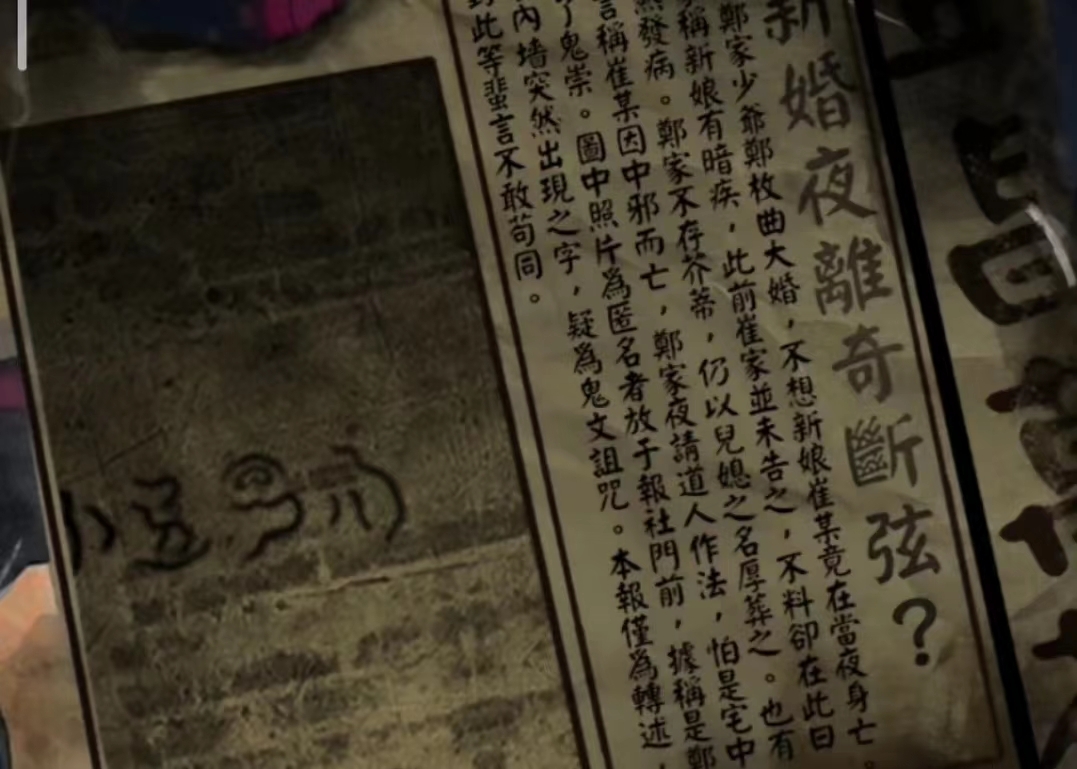 新婚夜離奇斷弦？
鄭家少爺鄭枚曲大婚，不想新娘崔某竟在當夜身亡。
稱新娘有暗疾，此前崔家並未告之，不料卻在此日
發病。鄭家不存芥蒂，仍以兒媳之名厚葬之。也有
言稱崔某因中邪而亡，鄭家夜請道人作法，怕是宅中
了鬼祟。圖中照片爲匿名者放于報社門前，據稱是鄭
內墙突然出現之字，疑爲鬼文詛咒。本報僅爲轉述，
此等蜚言不敢苟同。